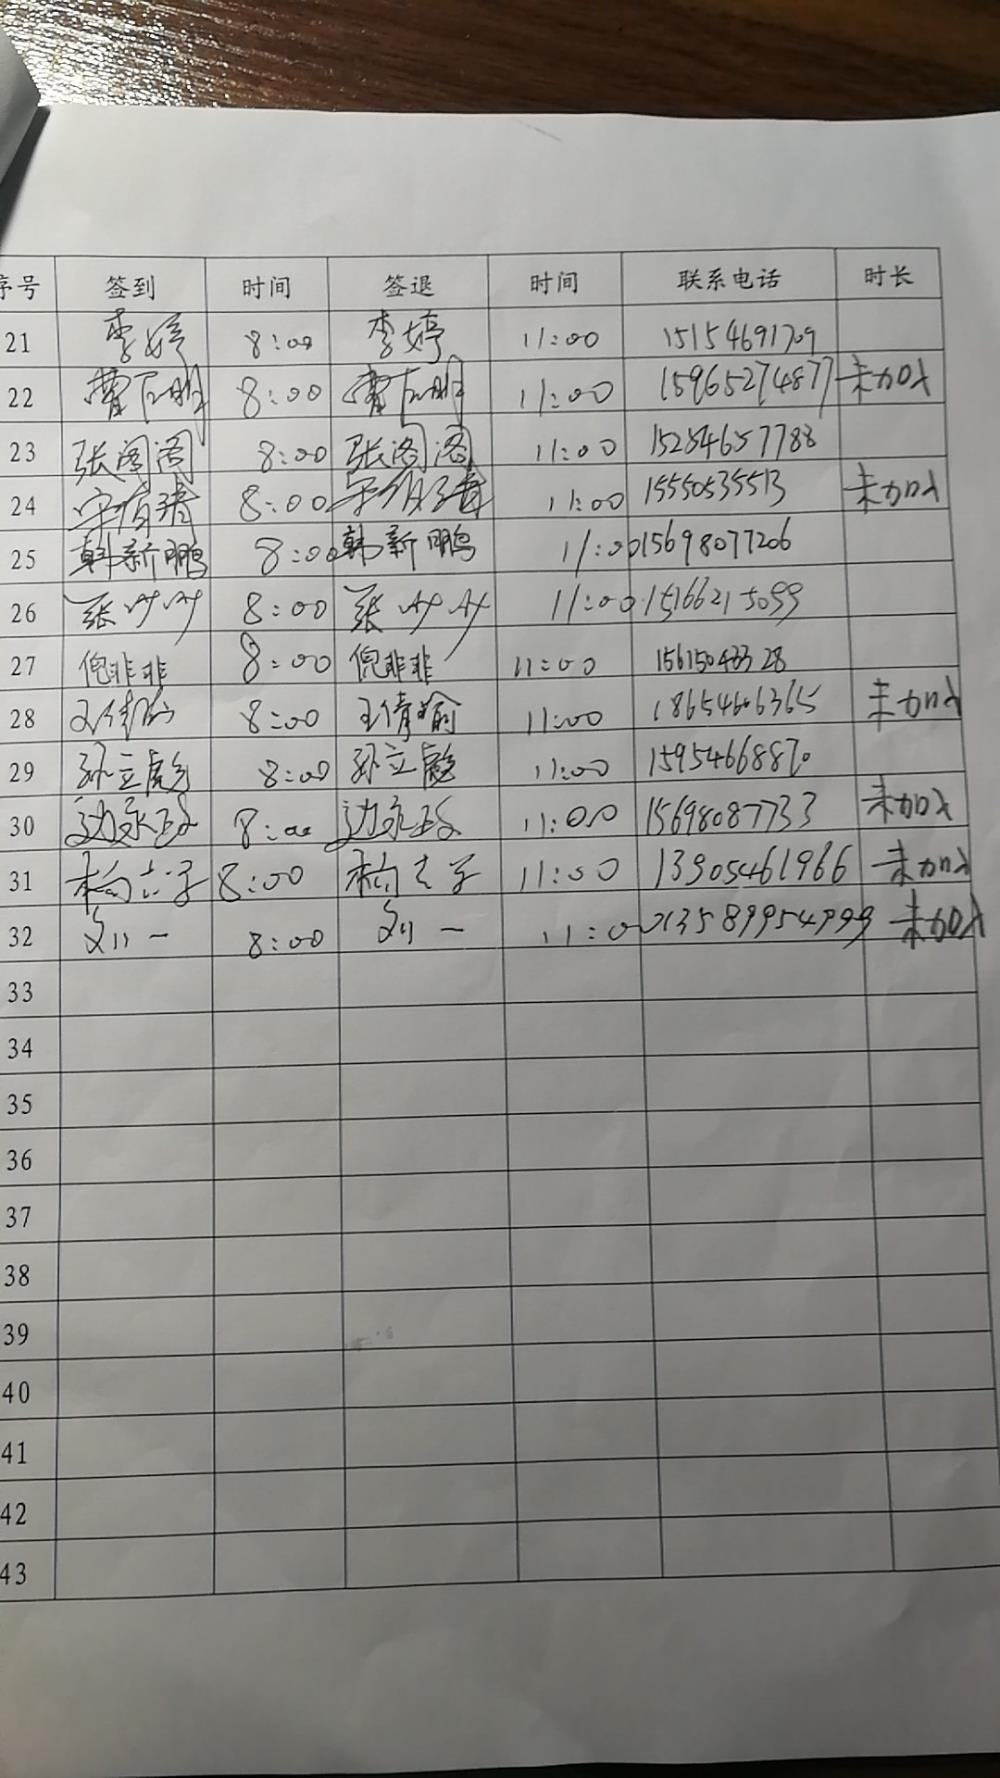 序号 签到 时间 签退 时间 联系电话 时长
21 李婷 8:00 李婷 11:00 15154691709
22 8:00 11:00 15965274877 未加入
23 张阁阁 8:00 张阁阁 11:00 15254657788
24 8:00 11:00 15550535513 未加入
25 韩新鹏 8:00 韩新鹏 11:00 15698077206
26 张 8:00 张 11:00 15166215099
27 倪非非 8:00 倪非非 11:00 15615043328
28 王倩喻 8:00 王倩喻 11:00 18654606365 未加入
29 孙立彪 8:00 孙立彪 11:00 15954668870
30 8:00 11:00 15698087733 未加入
31 8:00 11:00 13905461966 未加入
32 刘一 8:00 刘一 11:00 13589954999 未加入
33
34
35
36
37
38
39
40
41
42
43